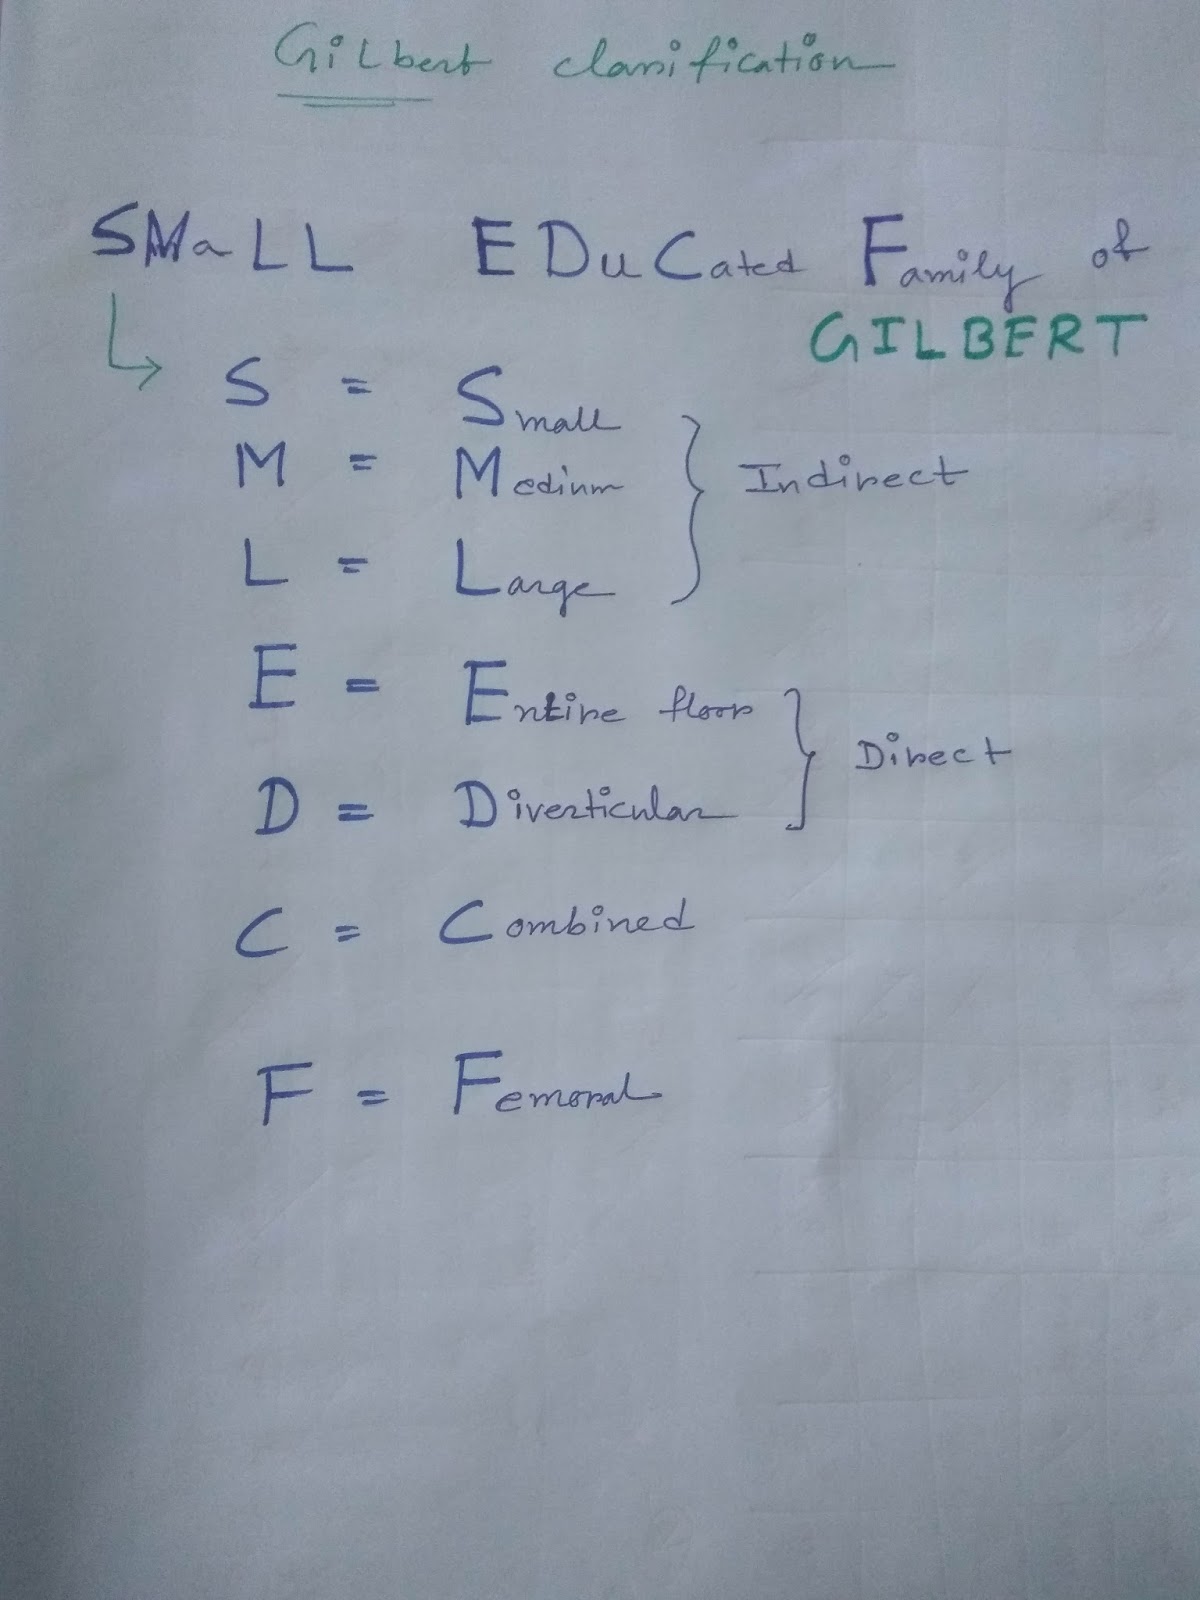 Gilbert classification
SMaLL EDuCated Family of
GILBERT
S = Small
M = Medium } Indirect
L = Large
E = Entire floor
} Direct
D = Diverticular
C = Combined
F = Femoral